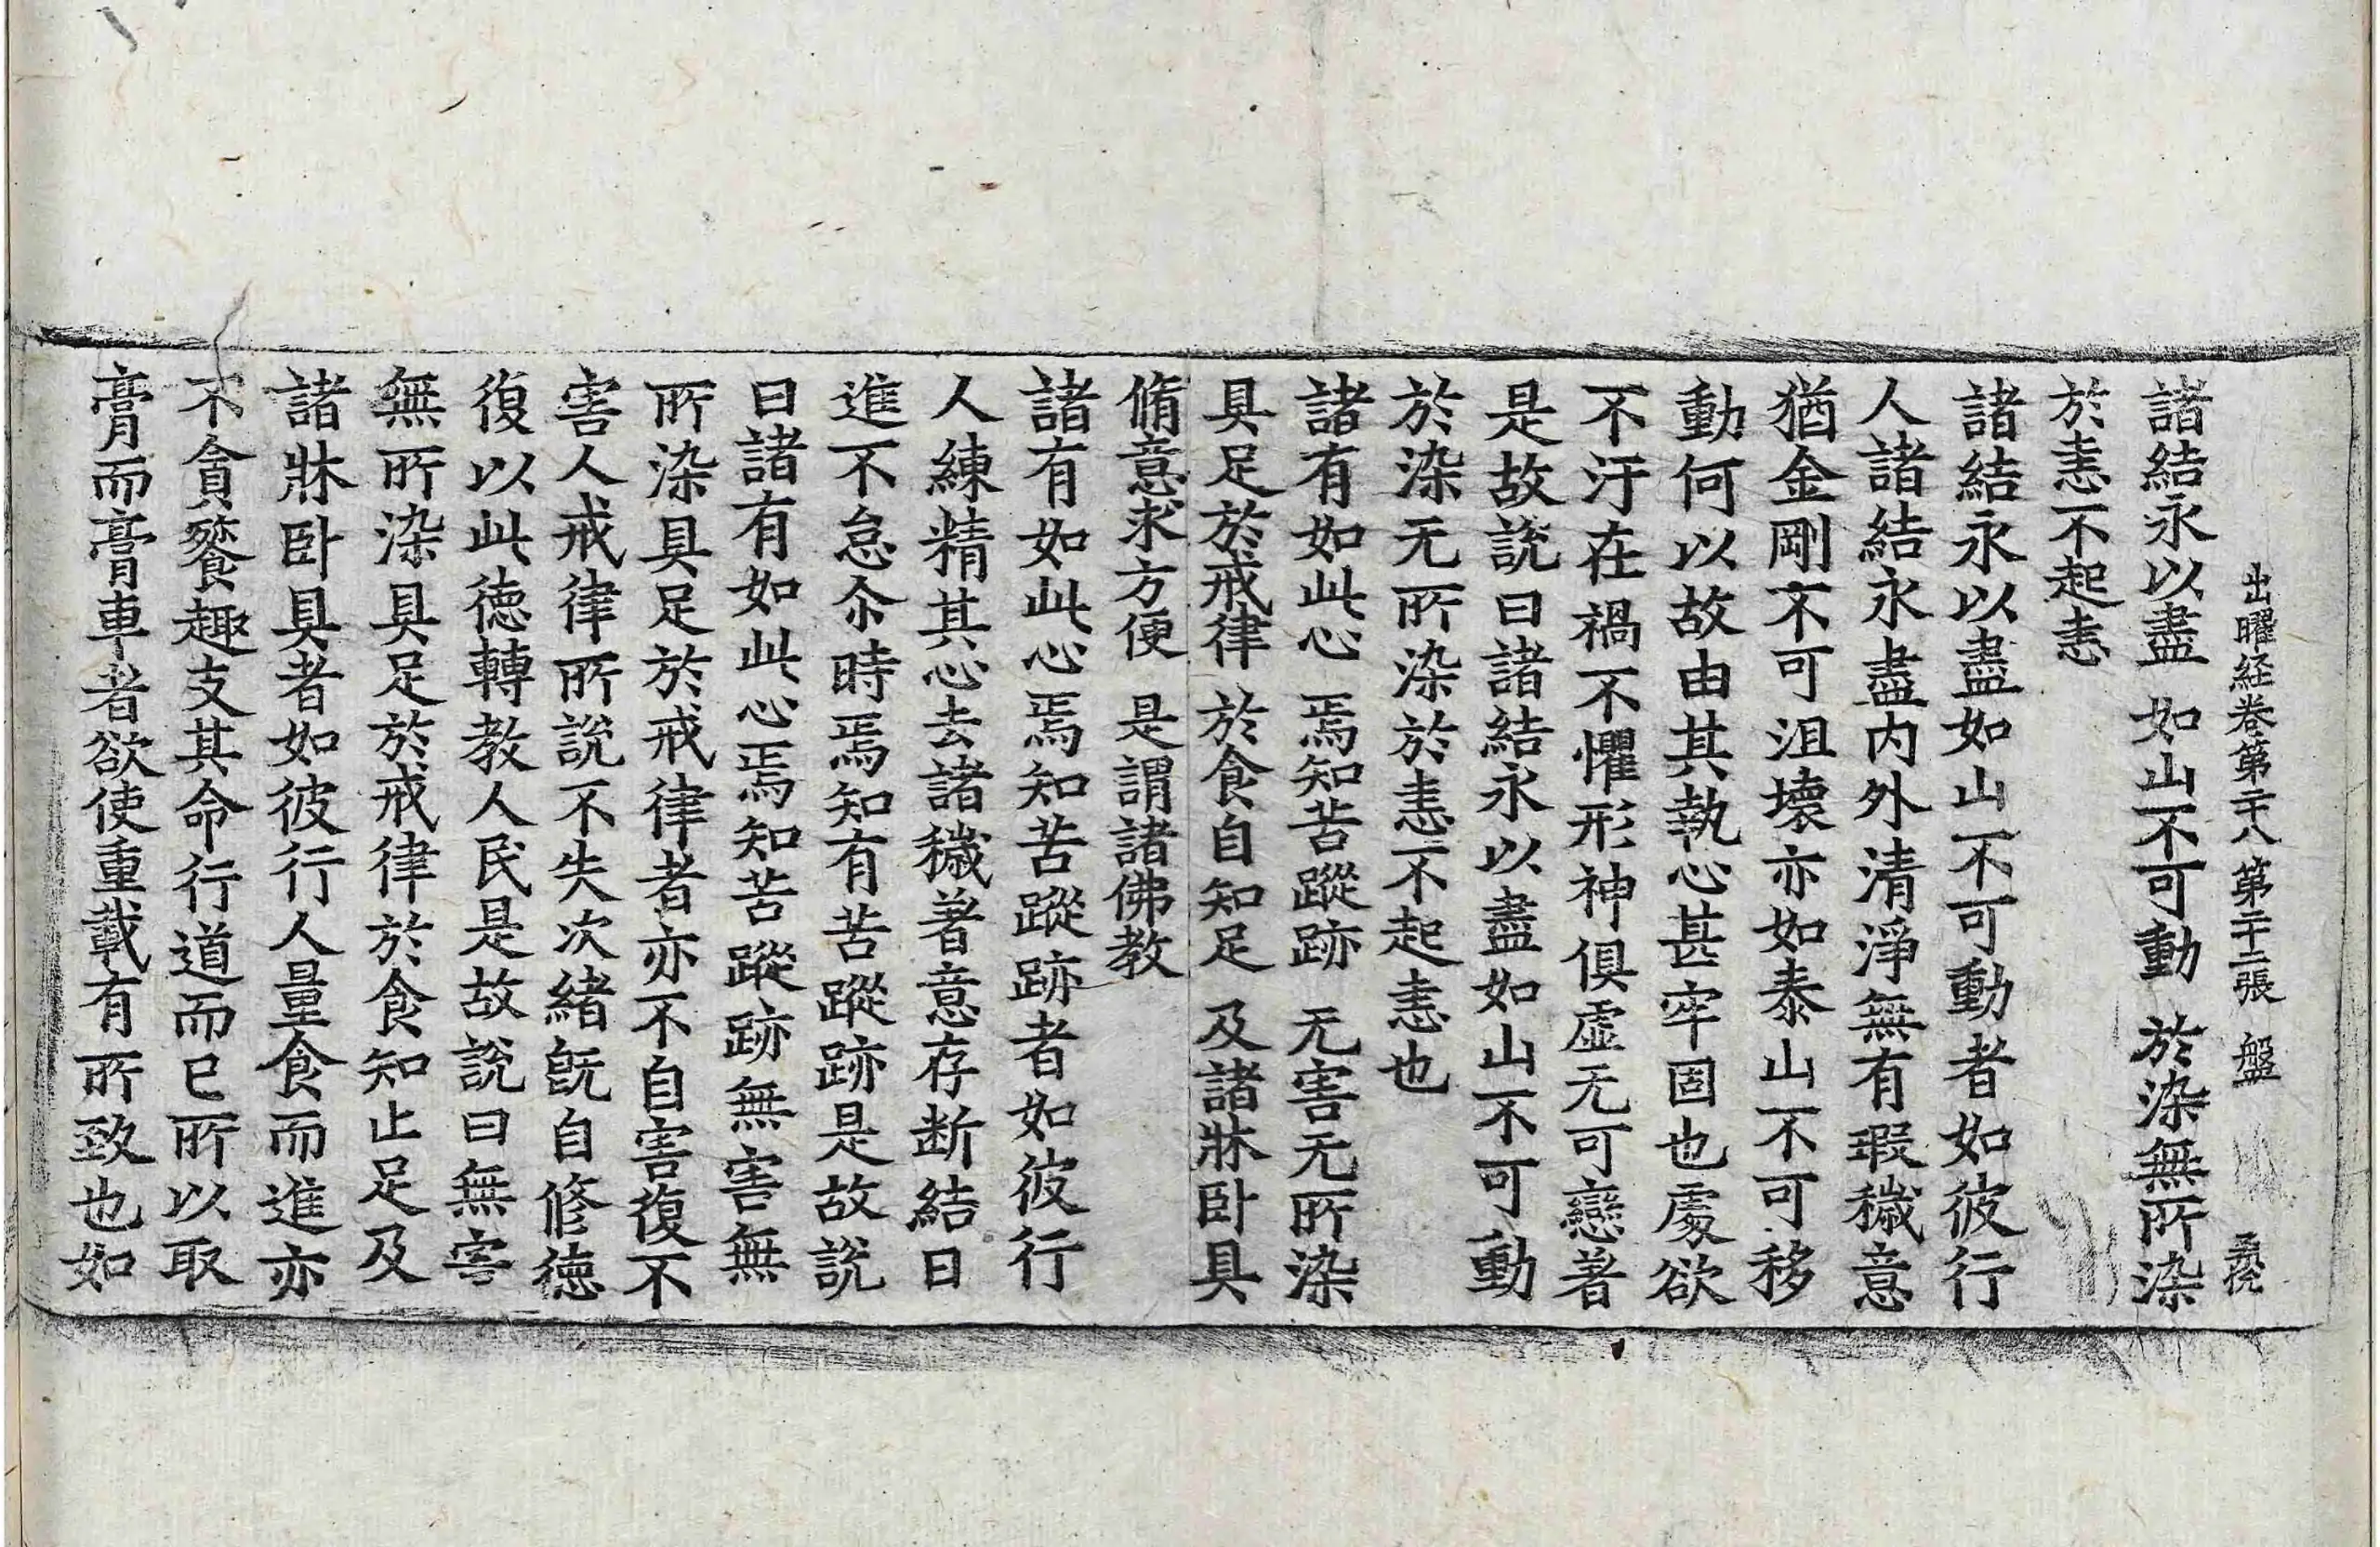 出曜経卷第二十八 第二十二張 盤
諸結永以盡 如山不可動 於染無所染
於恚不起恚
諸結永以盡如山不可動者如彼行
人諸結永盡内外清淨無有瑕穢意
猶金剛不可沮壞亦如泰山不可移
動何以故由其執心甚牢固也處欲
不汙在禍不懼形神俱虚无可戀著
是故說曰諸結永以盡如山不可動
於染无所染於恚不起恚也
諸有如此心 焉知苦蹤跡 无害无所染
具足於戒律 於食自知足 及諸牀卧具
脩意求方便 是謂諸佛教
諸有如此心焉知苦蹤跡者如彼行
人練精其心去諸穢著意存断結日
進不怠尒時焉知有苦蹤跡是故說
曰諸有如此心焉知苦蹤跡無害無
所染具足於戒律者亦不自害復不
害人戒律所說不失次緒旣自修德
復以此德轉教人民是故說曰無害
無所染具足於戒律於食知止足及
諸牀卧具者如彼行人量食而進亦
不貪餮趣支其命行道而已所以取
膏而膏車者欲使重載有所致也如